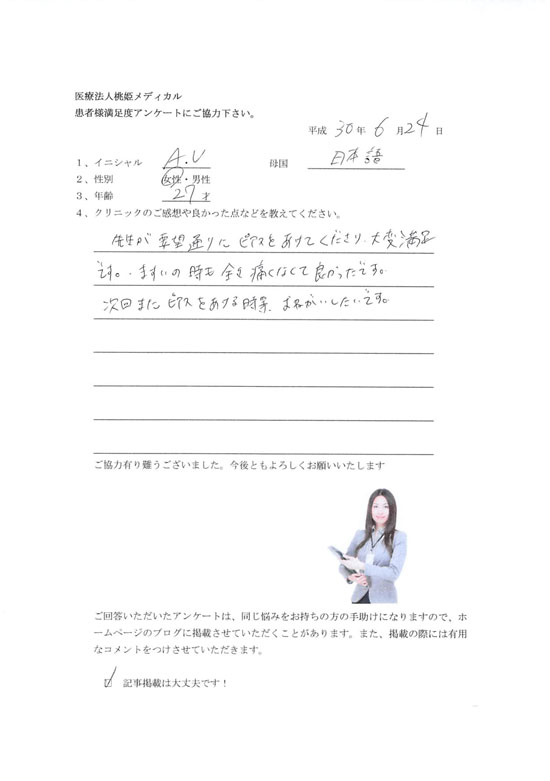 医療法人桃姫メディカル
患者様満足度アンケートにご協力下さい。
平成 30年 6月24日
1、イニシャル A.U 母国 日本語
2、性別 女性・男性
3、年齢 27才
4、クリニックのご感想や良かった点などを教えてください。
先生が要望通りにピアスをあけてくださり、大変満足
です。ますいの時も全く痛くなくて良かったです。
次回またピアスをあける時、おねがいしたいです。
ご協力有り難うございました。今後ともよろしくお願いいたします
ご回答いただいたアンケートは、同じ悩みをお持ちの方の手助けになりますので、ホ
ームページのブログに掲載させていただくことがあります。また、掲載の際には有用
なコメントをつけさせていただきます。
記事掲載は大丈夫です！